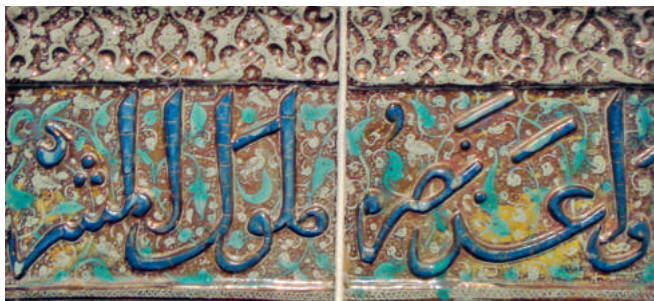 واعز نصره ملوك المشر